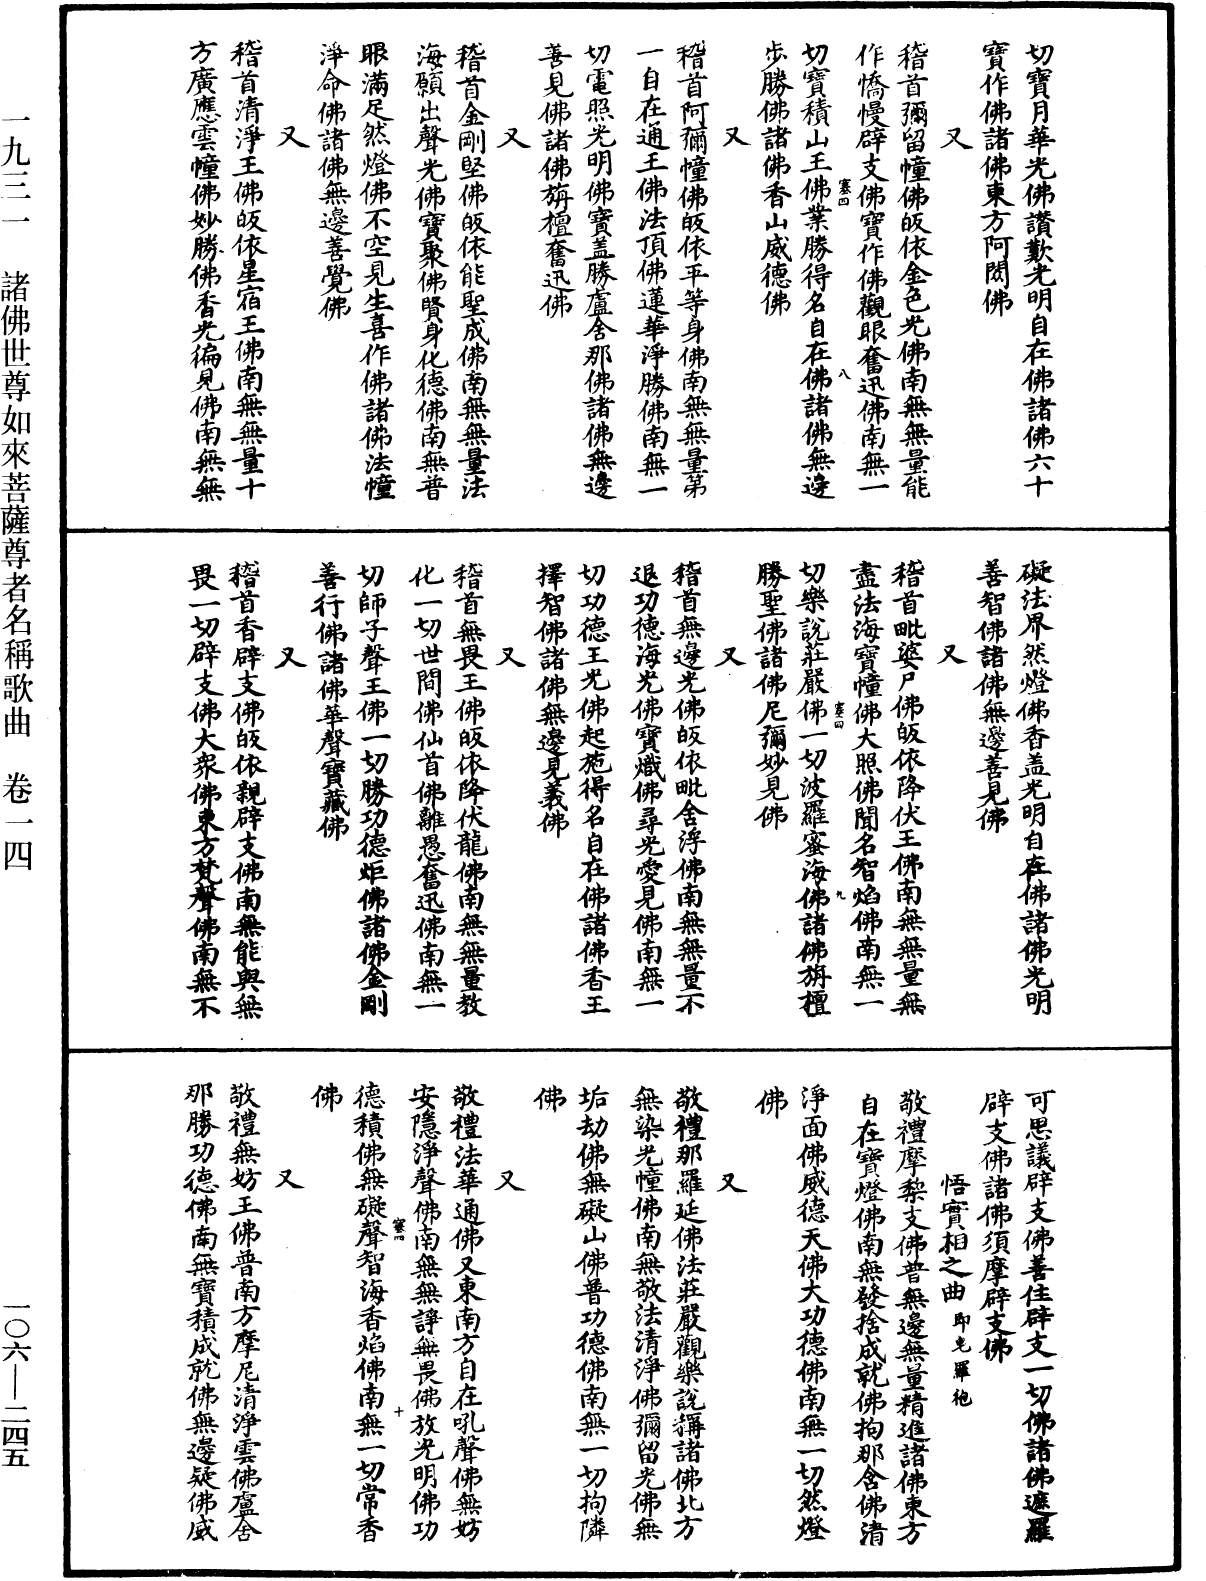 切寶月華光佛讚歎光明自在佛諸佛六十
寶作佛諸佛東方阿閦佛
又
稽首彌留幢佛皈依金色光佛南無無量能
作憍慢辟支佛寶作佛觀眼奮迅佛南無一
切寶積山王佛業勝得名自在佛諸佛無邊
步勝佛諸佛香山威德佛
又
稽首阿彌幢佛皈依平等身佛南無無量第
一自在通王佛法頂佛蓮華淨勝佛南無一
切電照光明佛寶盖勝盧舍那佛諸佛無邊
善見佛諸佛旃檀奮迅佛
又
稽首金剛堅佛皈依能聖成佛南無無量法
海願出聲光佛寶聚佛賢身化德佛南無普
眼滿足然燈佛不空見生喜作佛諸佛法幢
淨命佛諸佛無邊善覺佛
又
稽首清淨王佛皈依星宿王佛南無無量十
方廣應雲幢佛妙勝佛香光徧見佛南無無
礙法界然燈佛香盖光明自在佛諸佛光明
善智佛諸佛無邊善見佛
又
稽首毗婆尸佛皈依降伏王佛南無無量無
盡法海寶幢佛大照佛聞名智焰佛南無一
切樂說莊嚴佛一切波羅蜜海佛諸佛旃檀
勝聖佛諸佛尼彌妙見佛
又
稽首無邊光佛皈依毗舍浮佛南無無量不
退功德海光佛寶熾佛尋光愛見佛南無一
切功德王光佛起施得名自在佛諸佛香王
擇智佛諸佛無邊見義佛
又
稽首無畏王佛皈依降伏龍佛南無無量教
化一切世間佛仙首佛離愚奮迅佛南無一
切師子聲王佛一切勝功德炬佛諸佛金剛
善行佛諸佛華聲寶藏佛
又
稽首香辟支佛皈依親辟支佛南無能與無
畏一切辟支佛大衆佛東方梵聲佛南無不
可思議辟支佛善住辟支一切佛諸佛遮羅
辟支佛諸佛須摩辟支佛
悟實相之曲 即皂羅袍
敬禮摩黎支佛普無邊無量精進諸佛東方
自在寶燈佛南無發捨成就佛拘那含佛清
淨面佛威德天佛大功德佛南無一切然燈
佛
又
敬禮那羅延佛法莊嚴觀樂說稱諸佛北方
無染光幢佛南無敬法清淨佛彌留光佛無
垢劫佛無礙山佛普功德佛南無一切拘隣
佛
又
敬禮法華通佛又東南方自在吼聲佛無妨
安隱淨聲佛南無無諍無畏佛放光明佛功
德積佛無礙聲智海香焰佛南無一切常香
佛
又
敬禮無妨王佛普南方摩尼清淨雲佛盧舍
那勝功德佛南無寶積成就佛無邊疑佛威
塞四
八
塞四
九
塞四
十
一九三一 諸佛世尊如來菩薩尊者名稱歌曲 卷一四
一〇六—二四五